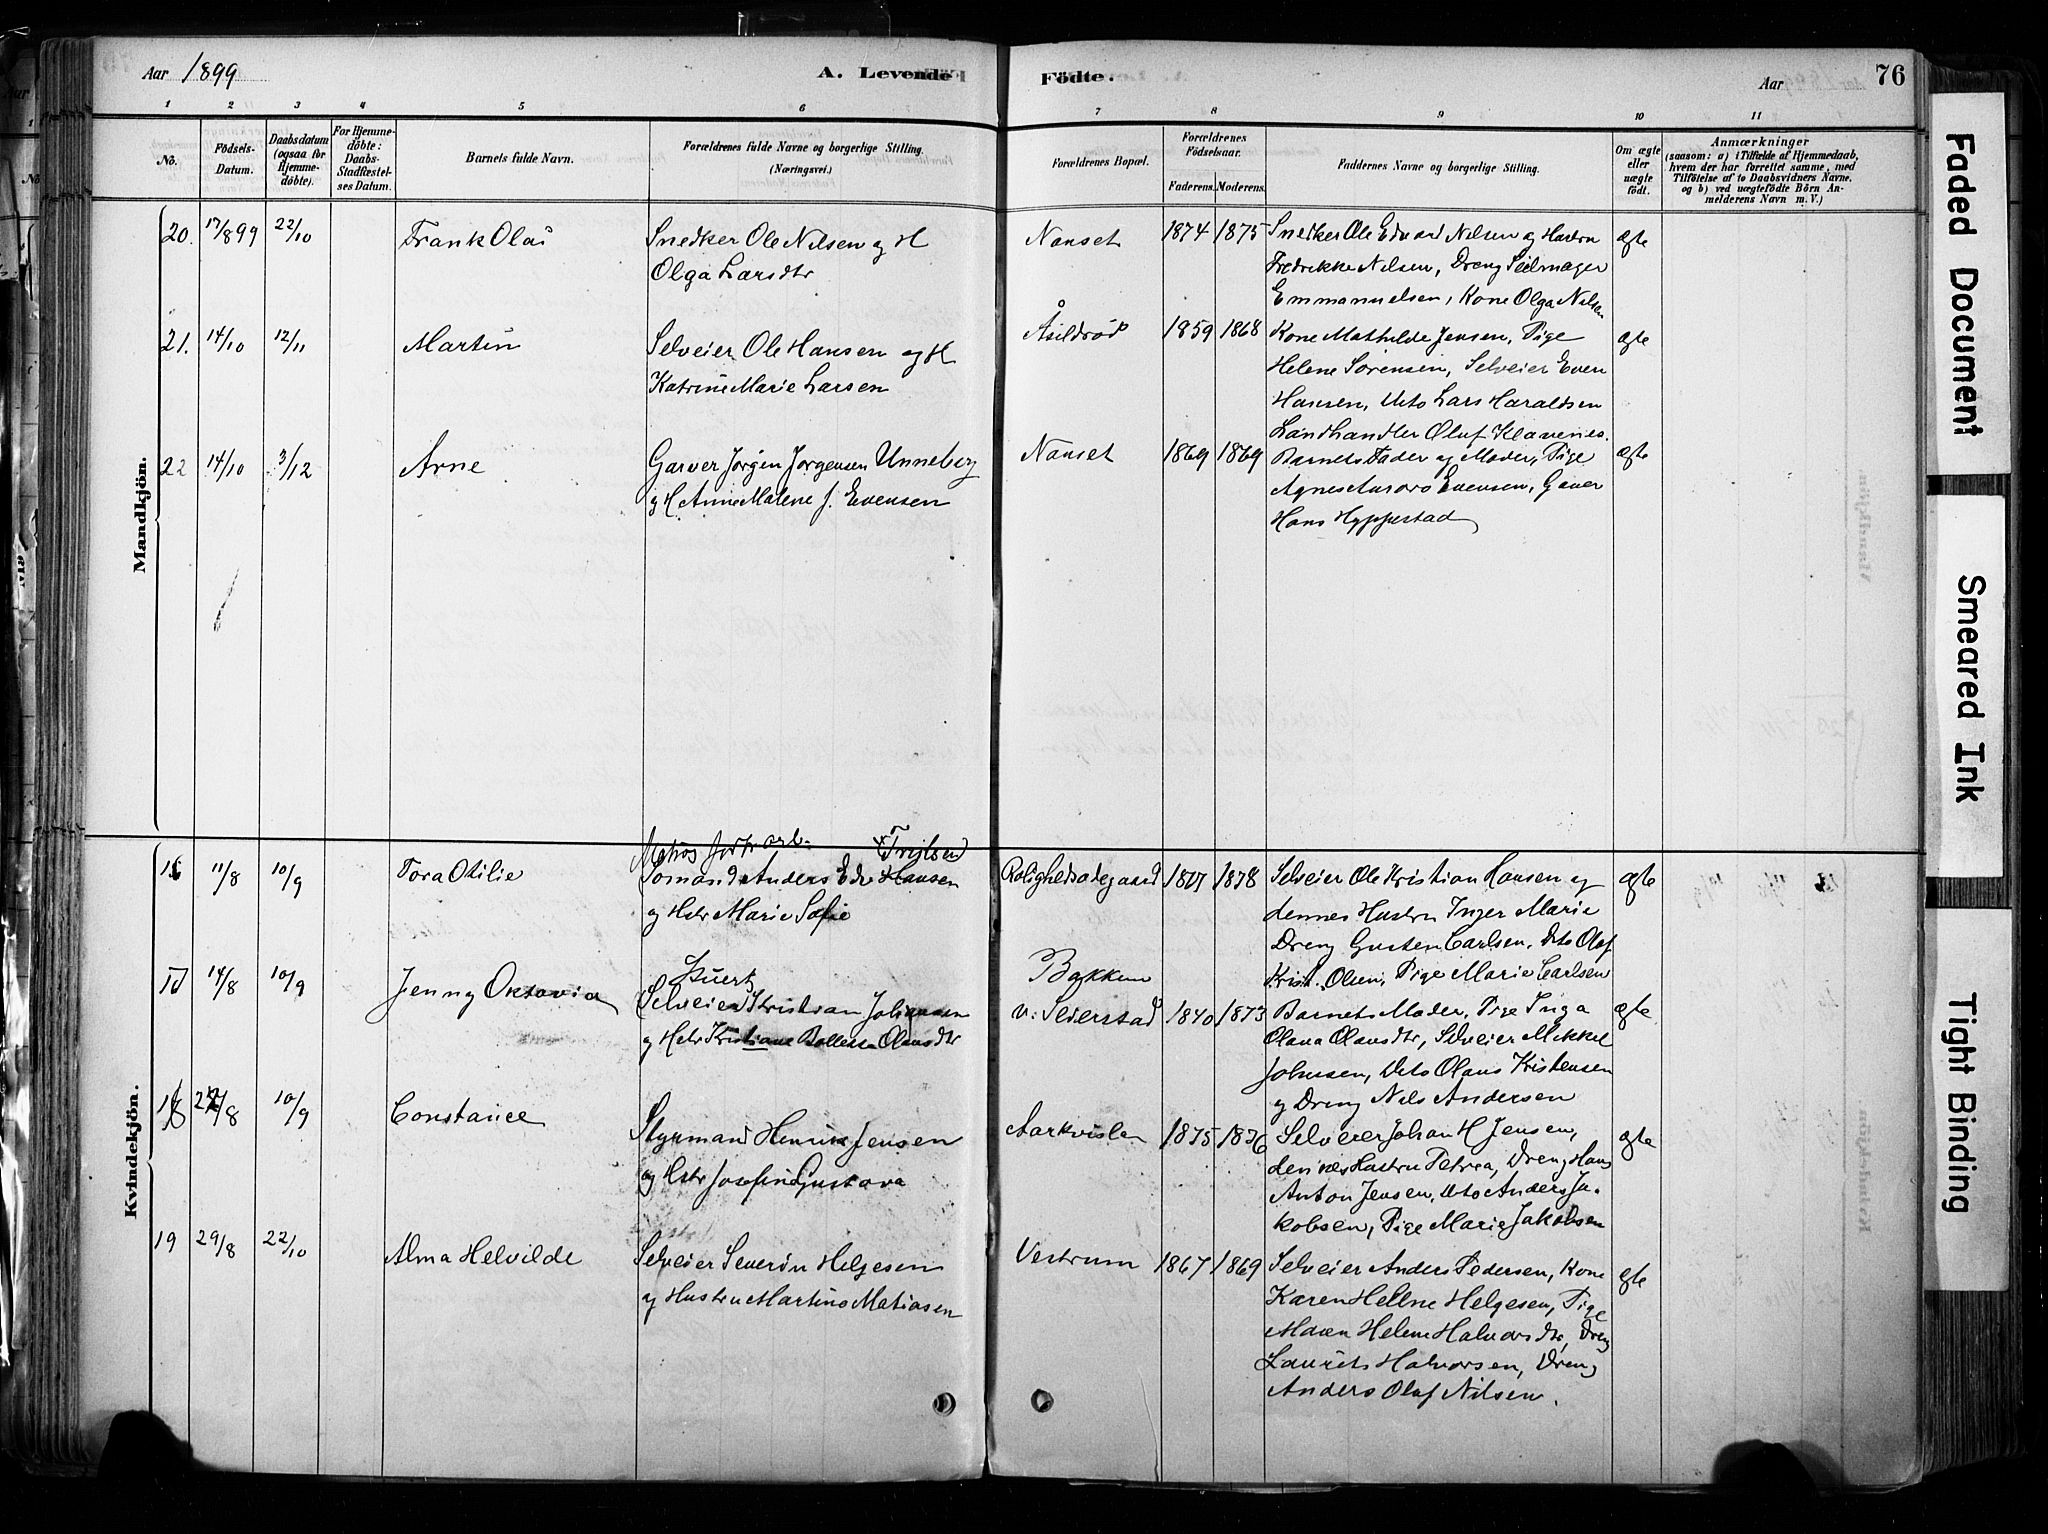 Aar 1899
A. Levende
Födte.
Aar
76
1 2 3 4 5 6 7 8 9 10 11
No.
Födsels-Datum.
Daabsdatum (ogsaa for Hjemmedöbte).
For Hjemmedöbte: Daabs-Stadfæstelses Datum.
Barnets fulde Navn.
Forældrenes fulde Navne og borgerlige Stilling. (Næringsvei.)
Forældrenes Bopæl.
Forældrenes Födselsaar.
Faderens. Moderens.
Faddernes Navne og borgerlige Stilling.
Om ægte eller uægte födt.
Anmærkninger
(saasom: a) i Tilfælde af Hjemmedaab, hvem der har forrettet samme, med Tilföielse af to Daabsvidners Navne, og b) ved uægtefödte Börn Anmelderens Navn m. V.)
Mandkjön.
20. 17/8 99 22/10 Frank Olai
Snedker Ole Nilsen og H
Olga Larsdtr
Nanset 1874 1875
Snedker Ole Edvard Nilsen og Hustru
Fredrikke Nilsen, Dreng Seilmager
Emmanuelsen, Kone Olga Nilsen
ægte
21. 14/10 12/11 Martin
Selveier Ole Hansen og H
Katrine Marie Larsen
Åsildrød 1859 1868
Kone Mathilde Jensen, Pige
Helene Sørensen, Selveier Even
Hansen, Dito Lars Haraldsen
Landhandler Oluf Klavenes.
ægte
22 14/10 3/12 Arne
Garver Jørgen Jørgensen Unneberg
og H Anne Malene f. Evensen
Nanset 1869 1869
Barnets Fader og Moder, Pige
Agnes Aurora Evensen, Garver
Hans Hyppestad
ægte
Kvindekjön.
16 11/8 10/9 Tora Otilie
Anders Edv Hansen
og Hstr Marie Sofie
Rolighedsødegaard 1878
Selveier Ole Kristian Hansen og
dennes Hustru Inger Marie
Dreng Gusten Carlsen, Dito Olaf
Krist. Olsen, Pige Marie Carlsen
ægte
17 14/8 10/9 Jenny Oktavia
Selveier Kristian Johansen
og Hstr Kristiane Olausdtr
Bakken
v: Seierstad 1840 1873
Barnets Moder, Pige Inga
Olava Olausdtr, Selveier Mikkel
Johnsen, Dito Olaus Kristensen
og Dreng Nils Andersen
ægte
18 10/9 Constance
Styrmand Henrik Jensen
og Hstr Josefine Gustava
1875 1876
Selveier Johan H Jensen,
dennes Hustru Petrea, Dreng Hans
Anton Jensen, Dito Anders Ja-
kobsen, Pige Marie Jakobsen
ægte
19 29/8 22/10 Alma Helvilde
Selveier Severin Helgesen
og Hustru Martine Matiasen
Vestrum 1867 1869
Selveier Anders Pedersen, Kone
Karen Helene Helgesen, Pige
Maren Helene Halvorsdtr, Dreng
Laurits Halvorsen, Dreng
Anders Olaf Nilsen.
ægte
Faded Document
Smeared Ink
Tight Binding